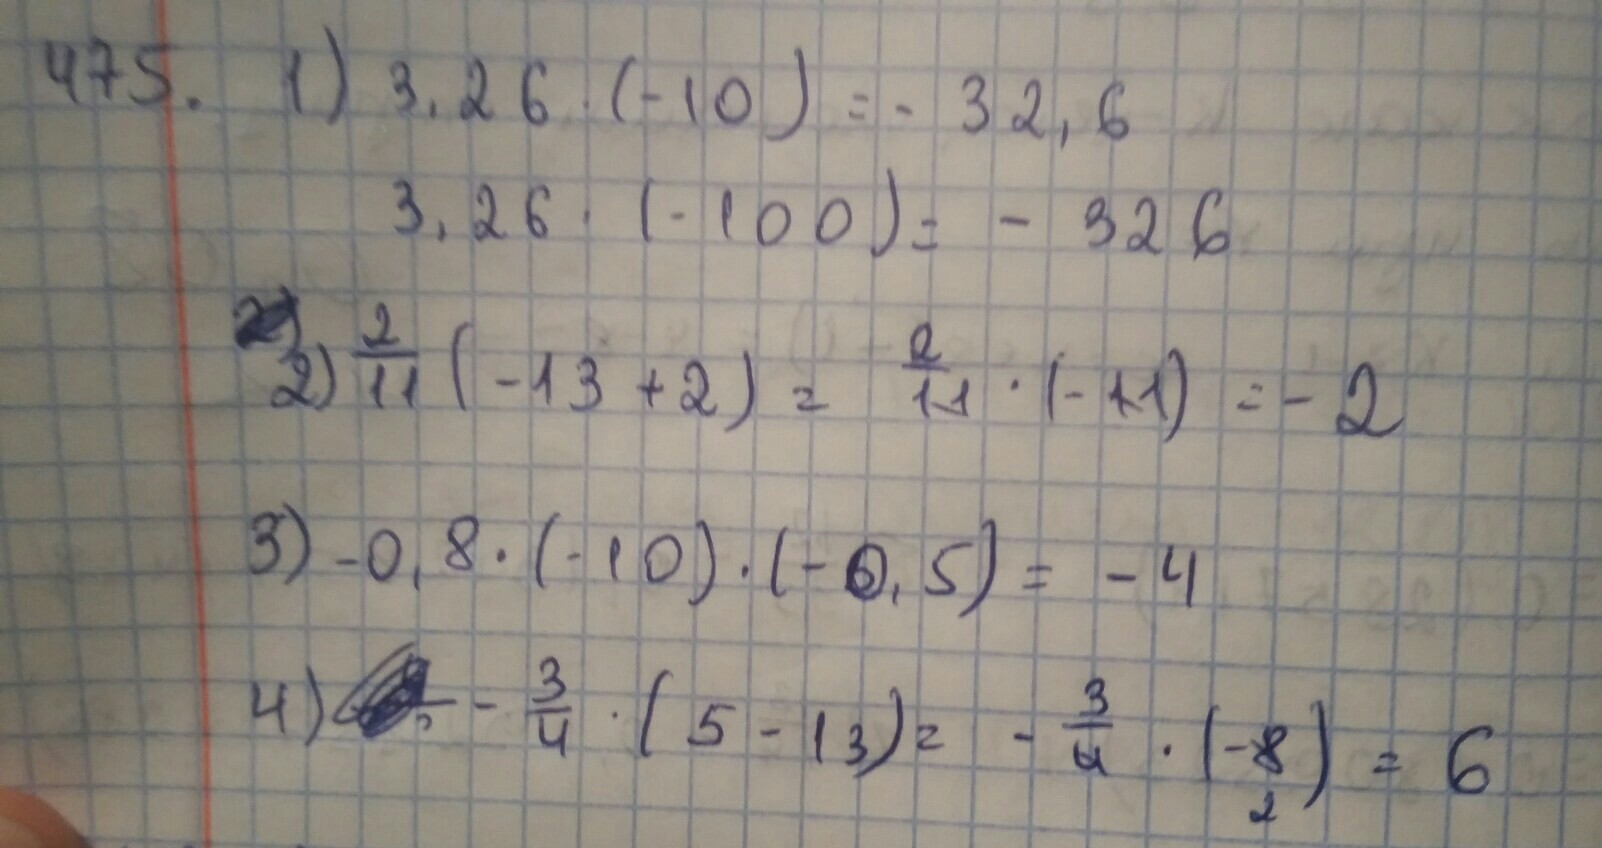 475. 1) 3,26 · (-10) = - 32,6
3,26 · (-100) = - 326
2) 2/11 (-13 + 2) = 2/11 · (-11) = - 2
3) -0,8 · (-10) · (-0,5) = - 4
4) - 3/4 · (5 - 13) = - 3/4 · (-8) = 6
2